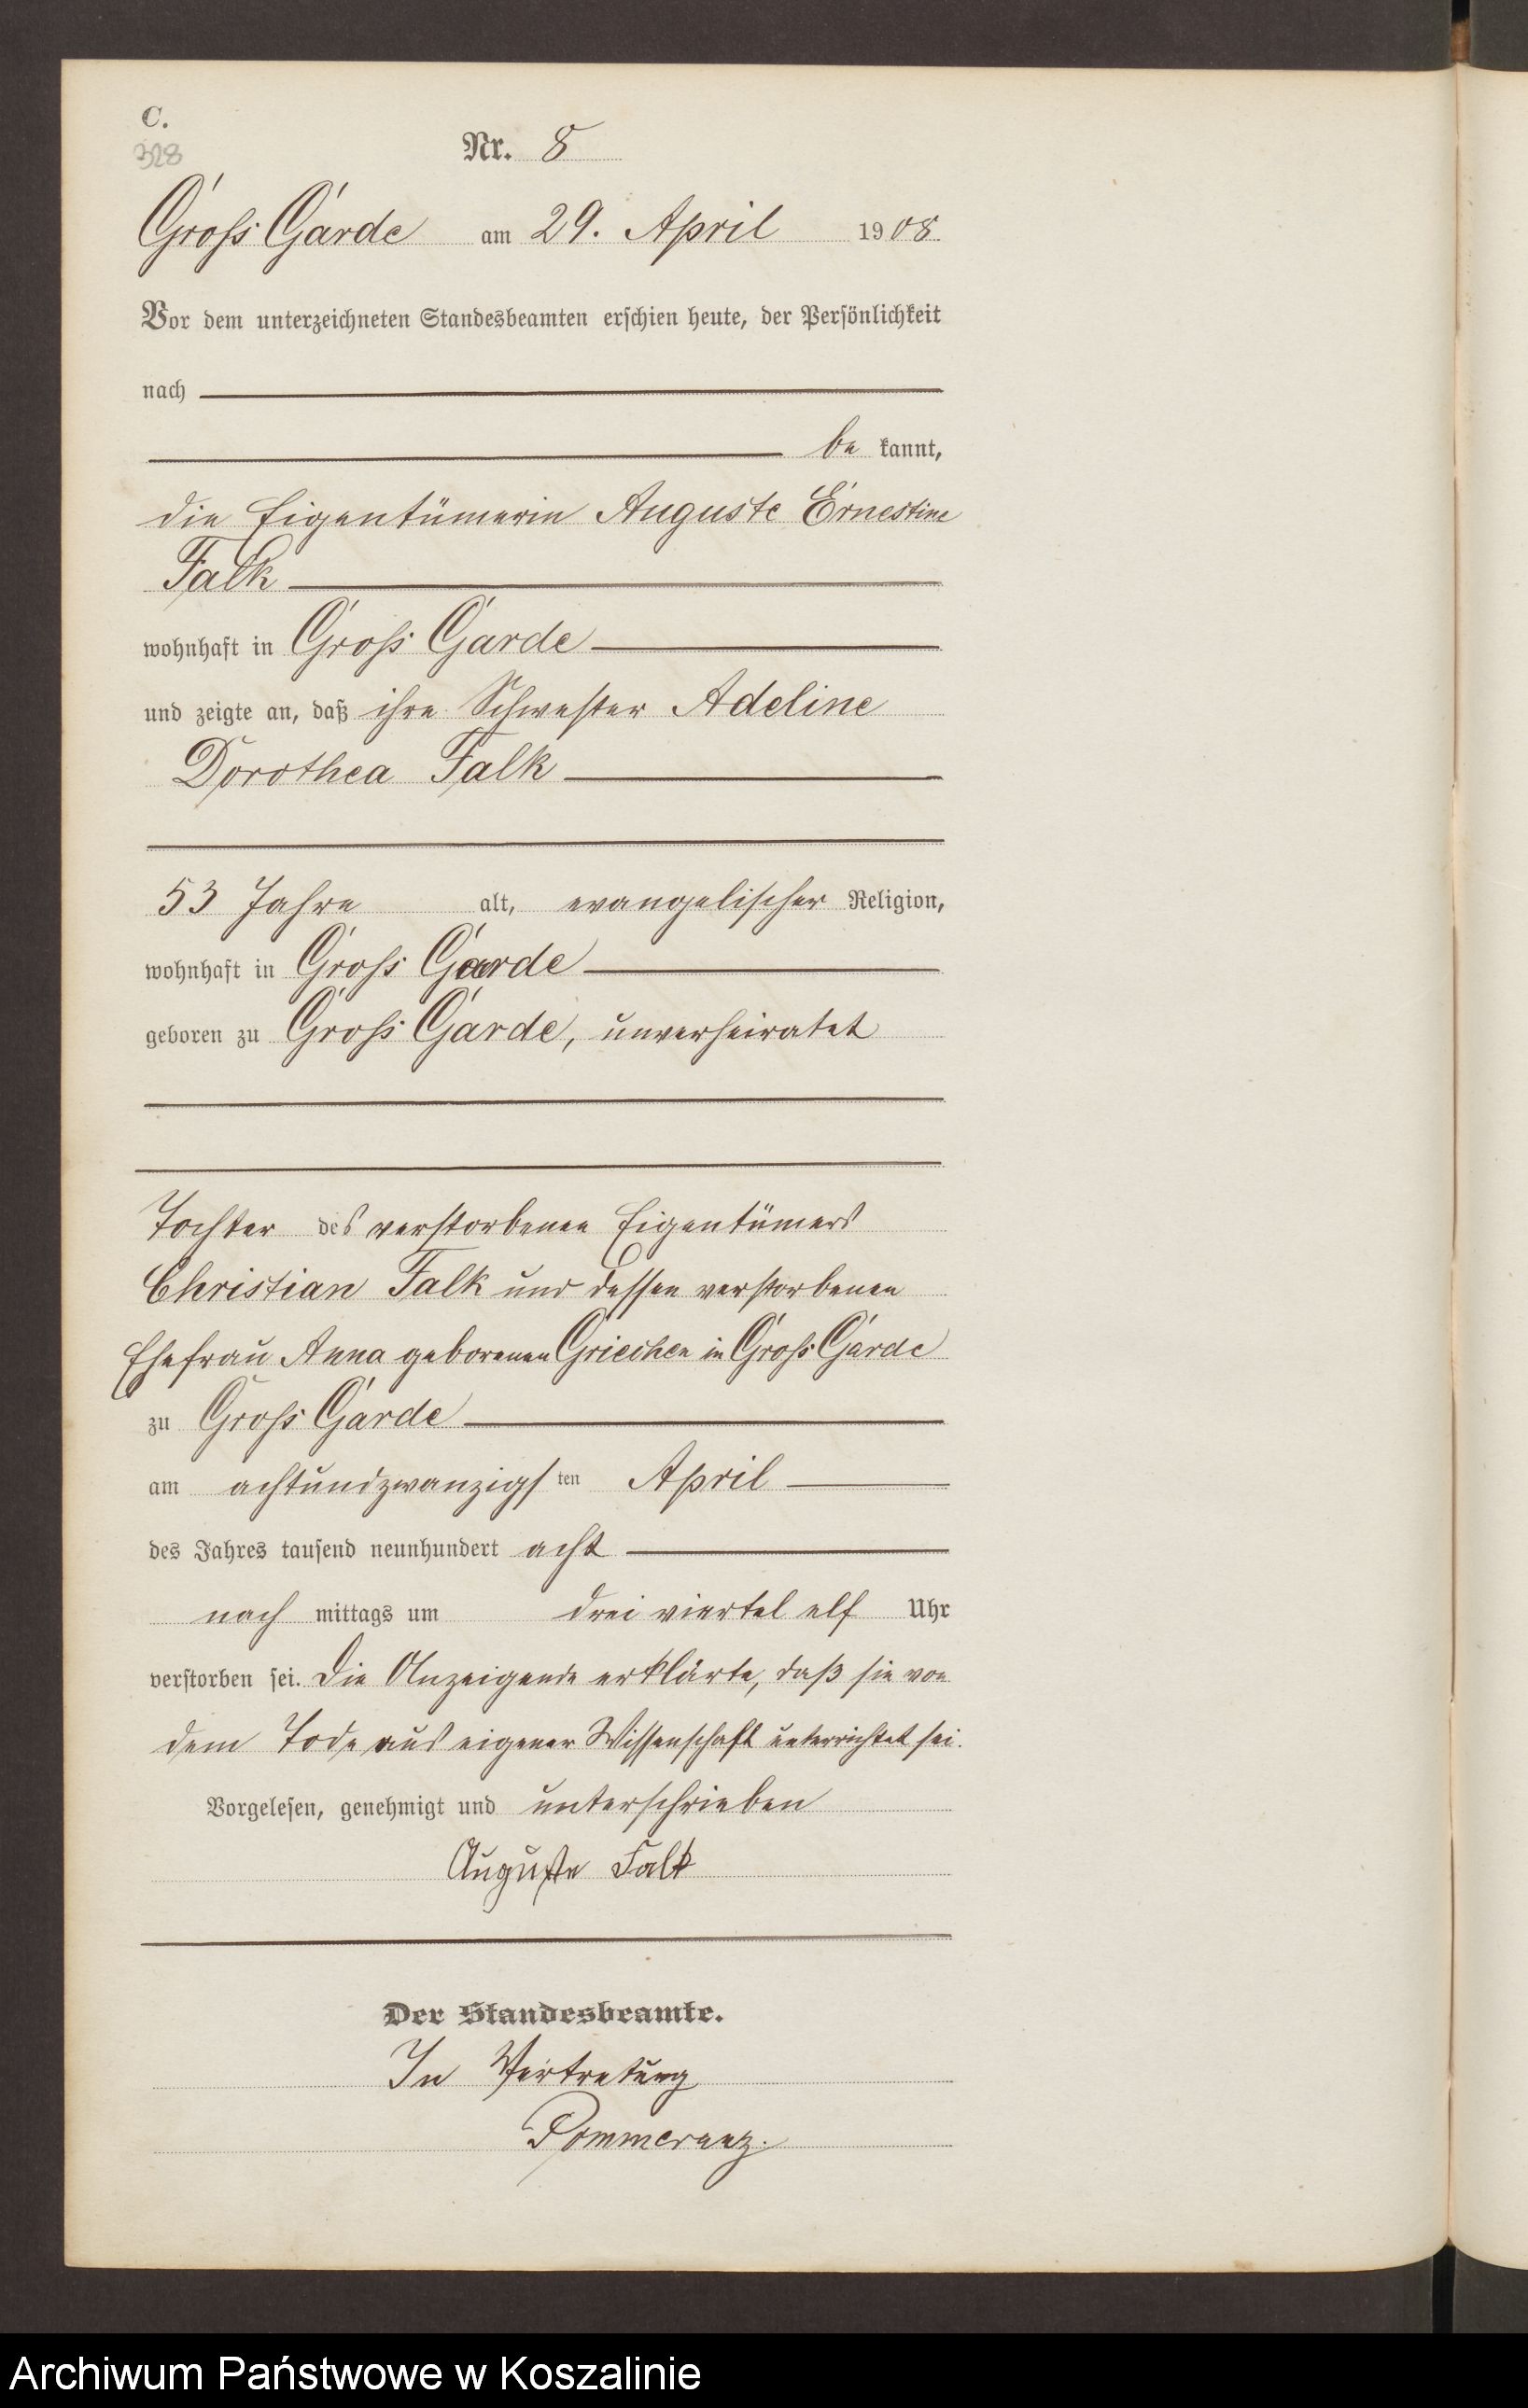 C.
328
Nr. 8
Gross Garde am 29. April 1908
Vor dem unterzeichneten Standesbeamten erschien heute, der Persönlichkeit
nach
be kannt,
die Eigentümerin Auguste Ernestine
Falk
wohnhaft in Gross Garde
und zeigte an, daß ihre Schwester Adeline
Dorothea Falk
53 Jahre alt, evangelischer Religion,
wohnhaft in Gross Garde
geboren zu Gross Garde, unverheiratet
Tochter des verstorbenen Eigentümers
Christian Falk und dessen verstorbenen
Ehefrau Anna geborenen Griechen in Gross Garde
zu Gross Garde
am achtundzwanzigsten April
des Jahres tausend neunhundert acht
nach mittags um drei viertel elf Uhr
verstorben sei. Die Anzeigende erklärte, daß sie von
dem Tode aus eigener Wissenschaft unterrichtet sei.
Vorgelesen, genehmigt und unterschrieben
Auguste Falk
Der Standesbeamte.
In Vertretung
Pommerenz.
Archiwum Państwowe w Koszalinie